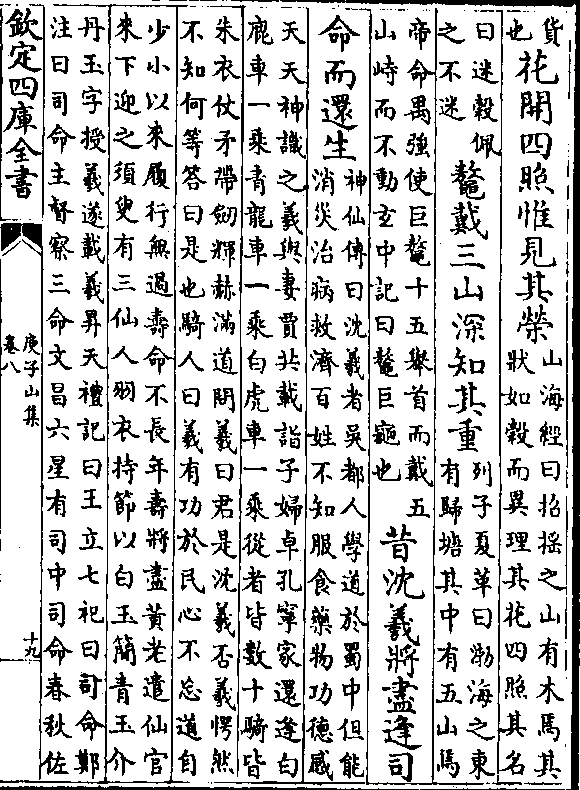 貨
也
花開四照惟見其榮
山海經曰招搖之山有木焉其
狀如榖而異理其花四照其名
曰迷榖佩
之不迷
鼇戴三山深知其重
列子夏革曰渤海之東
有歸塘其中有五山焉
帝命禺強使巨鼇十五舉首而戴五
山峙而不動玄中記曰鼇巨龜也
昔沈羲將盡逢司
命而還生
神仙傳曰沈羲者吳都人學道於蜀中但能
消災治病救濟百姓不知服食藥物功德感
天天神識之羲與妻賈共載詣子婦卓孔寧家還逢白
鹿車一乘青龍車一乘白虎車一乘從者皆數十騎皆
朱衣仗矛帶劒輝赫滿道問羲曰君是沈羲否羲愕然
不知何等答曰是也騎人曰羲有功於民心不忘道自
少小以來履行無過壽命不長年壽將盡黃老遣仙官
來下迎之須臾有三仙人羽衣持節以白玉簡青玉介
丹玉字授羲遂載羲昇天禮記曰王立七祀曰司命鄭
注曰司命主督察三命文昌六星有司中司命春秋佐
欽定四庫全書
庾子山集
卷八
十九